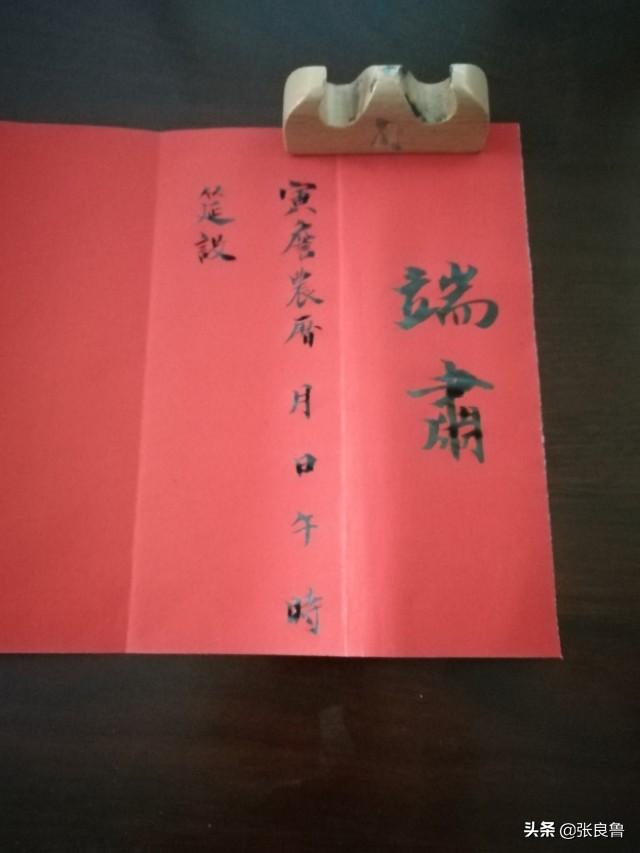 端肅
寅詹農曆 月 日 午 時
筵設
头条 @张良鲁